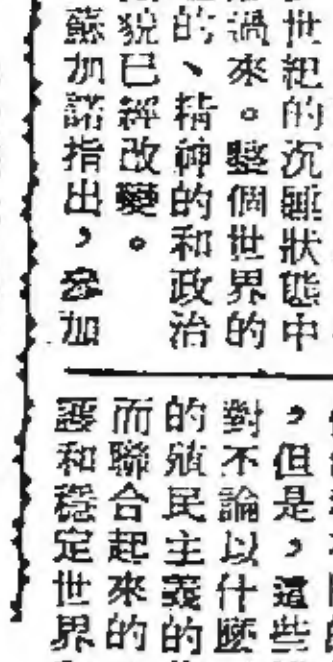 世紀的沉睡狀態中
過來。整個世界的
的、精神的和政治
貌已經改變。
蘇加諾指出，參加
，但是，這些
對不論以什麼
的殖民主義的
而聯合起來的
護和穩定世界